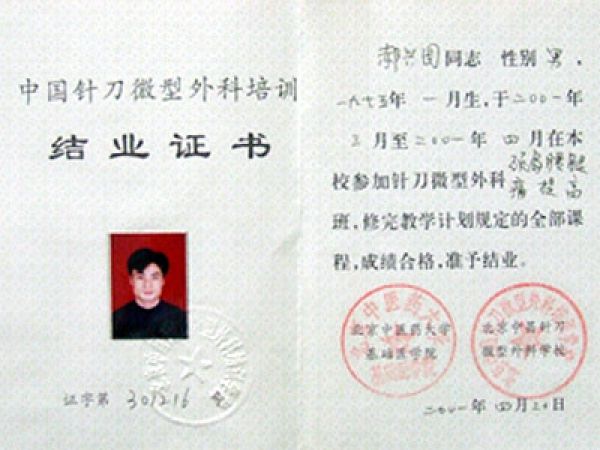 中国针刀微型外科培训
结业证书
证字第 301216 号
郭兴国同志 性别 男，
一九七五年 一月生，于二〇〇一年
三月至二〇〇一年 四月在本
校参加针刀微型外科
痛提高
班，修完教学计划规定的全部课
程，成绩合格，准予结业。
北京中医药大学
基础医学院
北京中昌针刀
微型外科学校
二〇〇一年 四月二十日